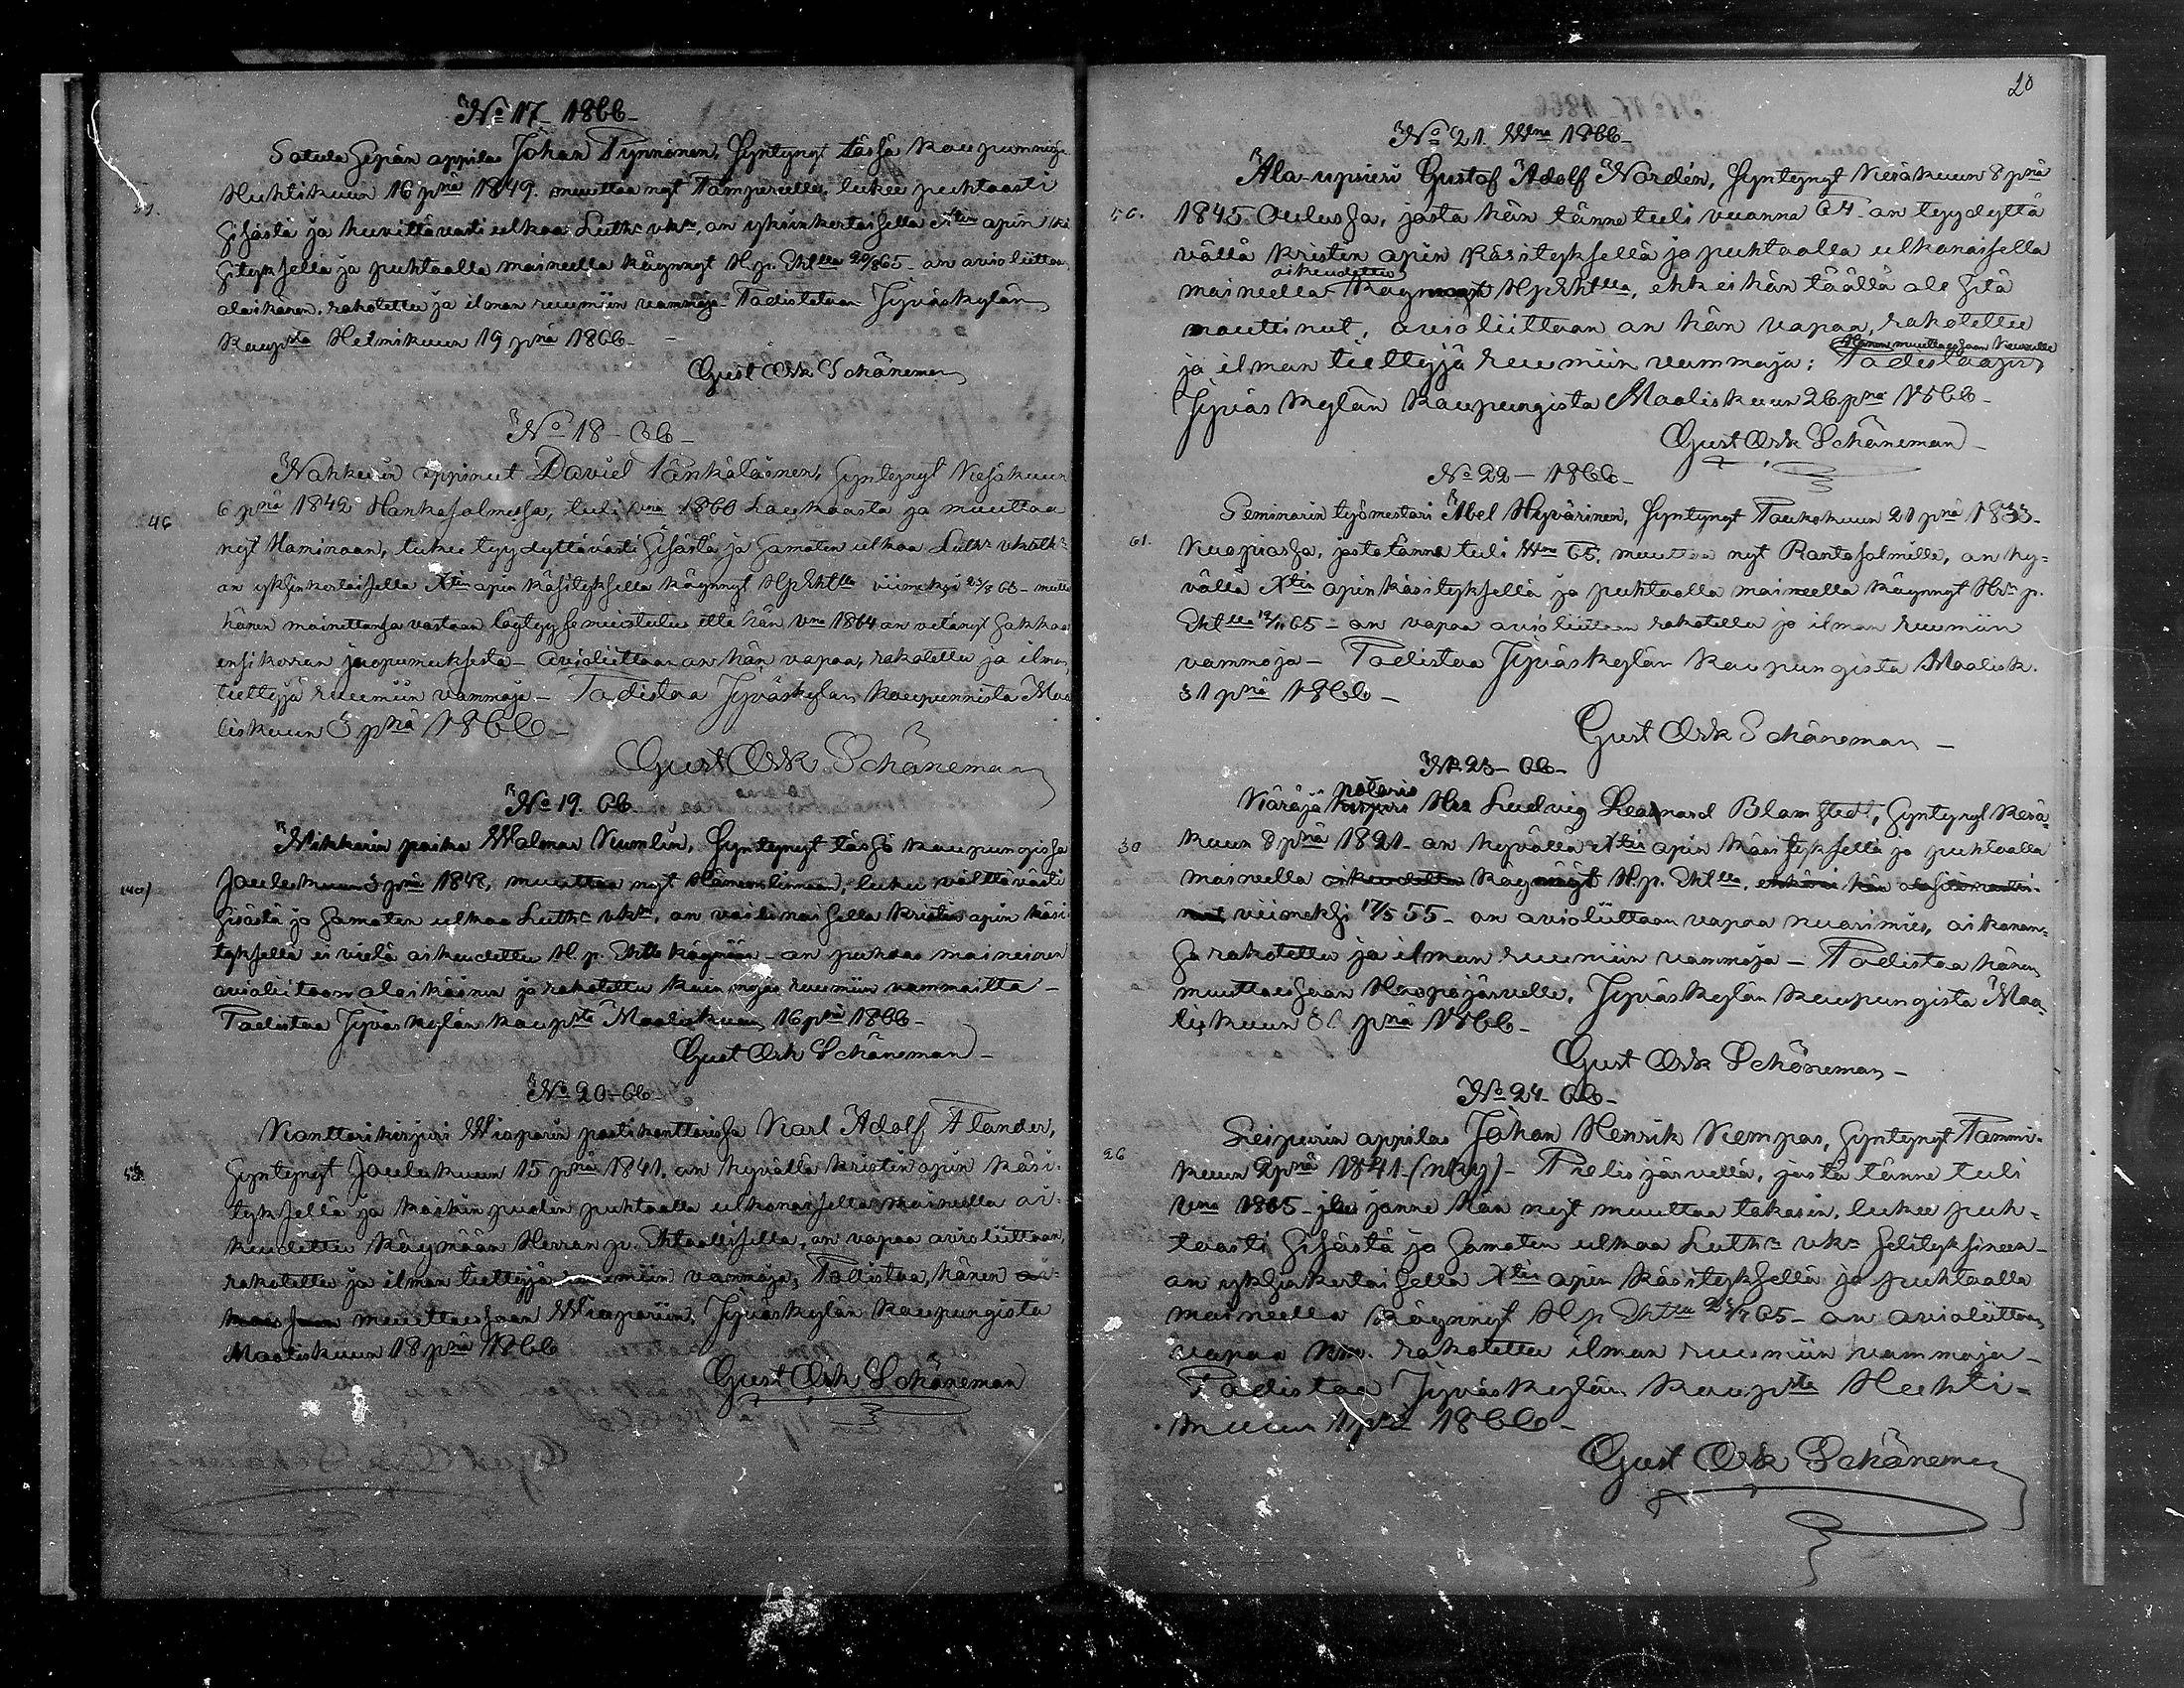 No 17 1866-
Satula Sepän oppilas Johan Pynnönen, Syntynyt tässä kaupunnissa
Huhtikuun 16 pnä 1849. muuttaa nyt Tampereelle, lukee puhtaasti
29.
Sisästä ja kuvittävasti ulkoa Luth: vk:, on yksinkertaisella Xtin opin kä
sityksellä ja puhtaalla maineella käynnyt H. p. Ehtlla 20/8 65 - on avioliittoon
alaikänen, rokotettu ja ilman ruumiin vammoja. Todistetaan Jyväskylän
Kaupsta Helmikuun 19 pnä 1866 -
Gust Osk Schöneman
No 18 - 66 -
Nahkurin oppinut David Pänkäläinen, Syntynyt Kesäkuun
6 pnä 1842 Hankasalmessa, tuli vna 1860 Laukaasta ja muuttaa
46
nyt Haminaan, lukee tyydyttävästi Sisästä ja Samaten ulkoa Luth:
on yksinkertaisella Xtin opin käsityksellä käynnyt HpEhtlla viimeksi 65 - mutta
hänen mainettansa vastaan löytyy se muistutus että hän vna 1864 on vetänyt Sakkoa
ensikerran juopumuksesta - Avioliittoon on hän vapaa, rokotettu ja ilman
tiettyjä ruumiin vammoja - Todistaa Jyväskylän kaupunnista Maa
liskuun 5 pnä 1866 -
Gust Osk Schöneman
No 19. 66
Nikkarin poika Walmar Numlin, Syntynyt tässä kaupungissa
Joulukuun 3 pnä 1848, muuttaa nyt Hämeenlinnaan, lukee välttävästi
Sisästä ja Samaten ulkoa Luth: vk:, on vaillinaisella kristin opin käsi
tyksellä ei vielä oikeudettu H. p. Ehtlle käymään - on puhdas maineinen
avioliitoon alaikäinen ja rokotettu kuin myös ruumiin vammoitta -
Todistaa Jyväskylän kaupsta Maaliskuun 16 pnä 1866 -
Gust Osk Schöneman -
No 20 - 66
Konttorikirjuri Wiaporin postikonttorissa Karl Adolf Alander,
Syntynyt Joulukuun 15 pnä 1841, on hyvällä kristin opin käsi-
tyksellä ja kaikin puolin puhtaalla ulkonaisella maineella oi-
keudettu käymään Herran p. Ehtoollisella, on vapaa avioliittoon,
rokotettu ja ilman tiettyjä ruumiin vammoja, Todistaa, hänen
muuttaessaan Wiaporiin, Jyväskylän kaupungista
Maaliskuun 18 pnä 1866
Gust Osk Schöneman
20
No 21 Wna 1866 -
Ala-upsieri Gustof Adolf Nordén, Syntynyt Kesäkuun 8 pnä
1845 Oulussa, josta hän tänne tuli vuonna 64 - on tyydyttä
vällä kristin opin käsityksellä ja puhtaalla ulkonaisella
oikeudettu
maineella HpEhtlla, ehk ei hän täällä ole Sitä
nauttinut, avioliittoon on hän vapaa, rokotettu
Hänen muuttaessaan
ja ilman tiettyjä ruumiin vammoja: Todistaapi
Jyväskylän kaupungista Maaliskuun 26 pnä 1866 -
Gust Osk Schöneman -
No 22 - 1866 -
Seminarin työmestari Abel Hyvärinen, Syntynyt Toukokuun 21 pnä 1833 -
61.
Kuopiossa, josta tänne tuli Wna 65, muuttaa nyt Rantasalmille, on hy-
vällä Xtin opin käsityksellä ja puhtaalla maineella käynnyt Hr: p.
Ehtlla 65 - on vapaa avioliittoon rokotettu ja ilman ruumiin
vammoja - Todistaa Jyväskylän kaupungista Maalisk.
31 pnä 1866 -
Gust Osk Schöneman -
No 23 - 66 -
notario
Käräjä Hra Ludvig Leonard Blomstedt, Syntynyt Kesä-
30
kuun 8 pnä 1821 - on hyvällä Xtin opin käsityksellä ja puhtaalla
maineella oikeudettu käynnyt H. p. Ehtlla,
viimeksi 17/5 55 - on avioliittoon vapaa nuorimies, aikanan-
Sa rokotettu ja ilman ruumiin vammoja - Todistaa hänen
muuttaessaan Haapajärvelle, Jyväskylän kaupungista Maa-
liskuun pnä 1866 -
Gust Osk Schöneman -
No 24 - 66 -
Leipurin oppilas Johan Henrik Kempas, Syntynyt Tammi-
26
kuun 2 pnä 1841 - Pielisjärvellä, josta tänne tuli
vna 1865 - jonne hän nyt muuttaa takasin, lukee puh-
taasti Sisästä ja Samaten ulkoa Luth: vk: Selityksineen -
on yksinkertaisella Xtin opin käsityksellä ja puhtaalla
maineella käynnyt H p Ehtlla 65 - on avioliittoon
vapaa rokotettu ilman ruumiin vammoja -
Todistaa Jyväskylän kaupsta Huhti-
kuun 1 pnä 1866 -
Gust Osk Schöneman